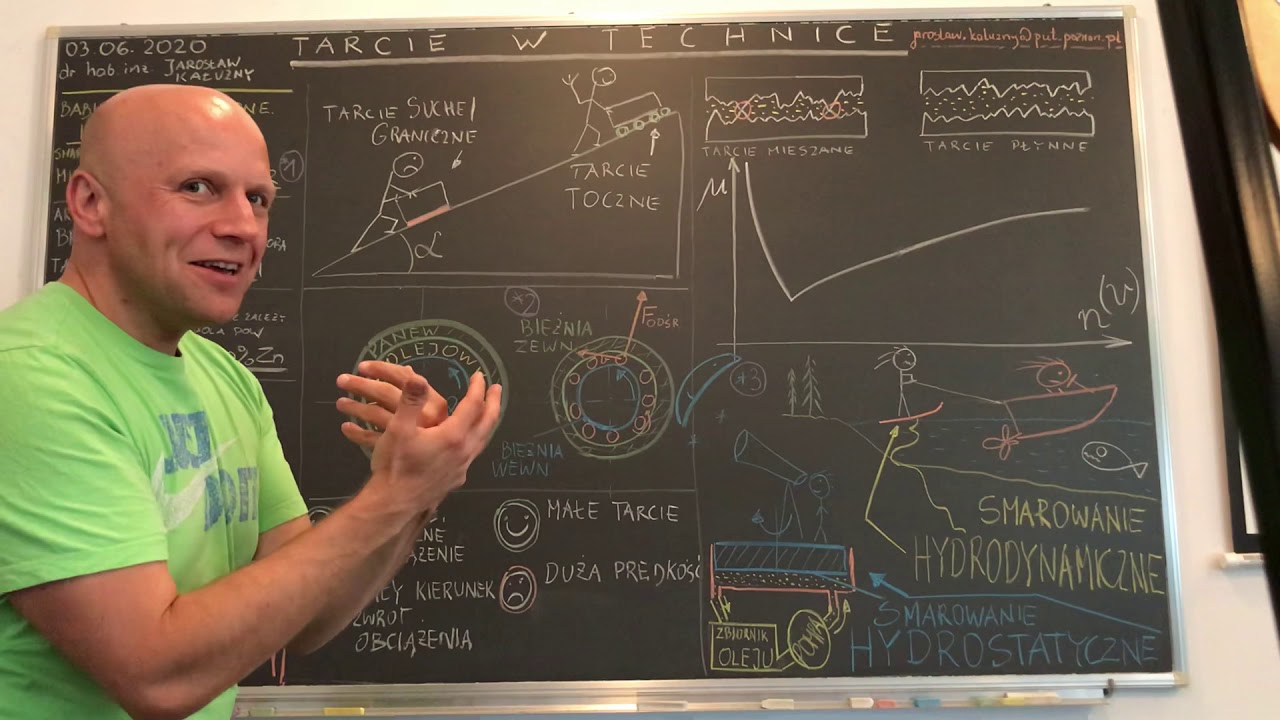 03.06.2020
dr hab. inż. JAROSŁAW
KAŁUŻNY
TARCIE W TECHNICE
jaroslaw.kaluzny@put.poznan.pl
*1
TARCIE SUCHE/
GRANICZNE
α
TARCIE
TOCZNE
TARCIE MIESZANE
TARCIE PŁYNNE
μ
n(v)
%Zn
*2
PANEW
OLEJOW
BIEŻNIA
ZEWN.
FODŚR
BIEŻNIA
WEWN
*3
MAŁE TARCIE
DUŻA PRĘDKOŚĆ
KIERUNEK
ZWROT
OBCIĄŻENIA
SMAROWANIE
HYDRODYNAMICZNE
SMAROWANIE
HYDROSTATYCZNE
ZBIORNIK
OLEJU
POMPA